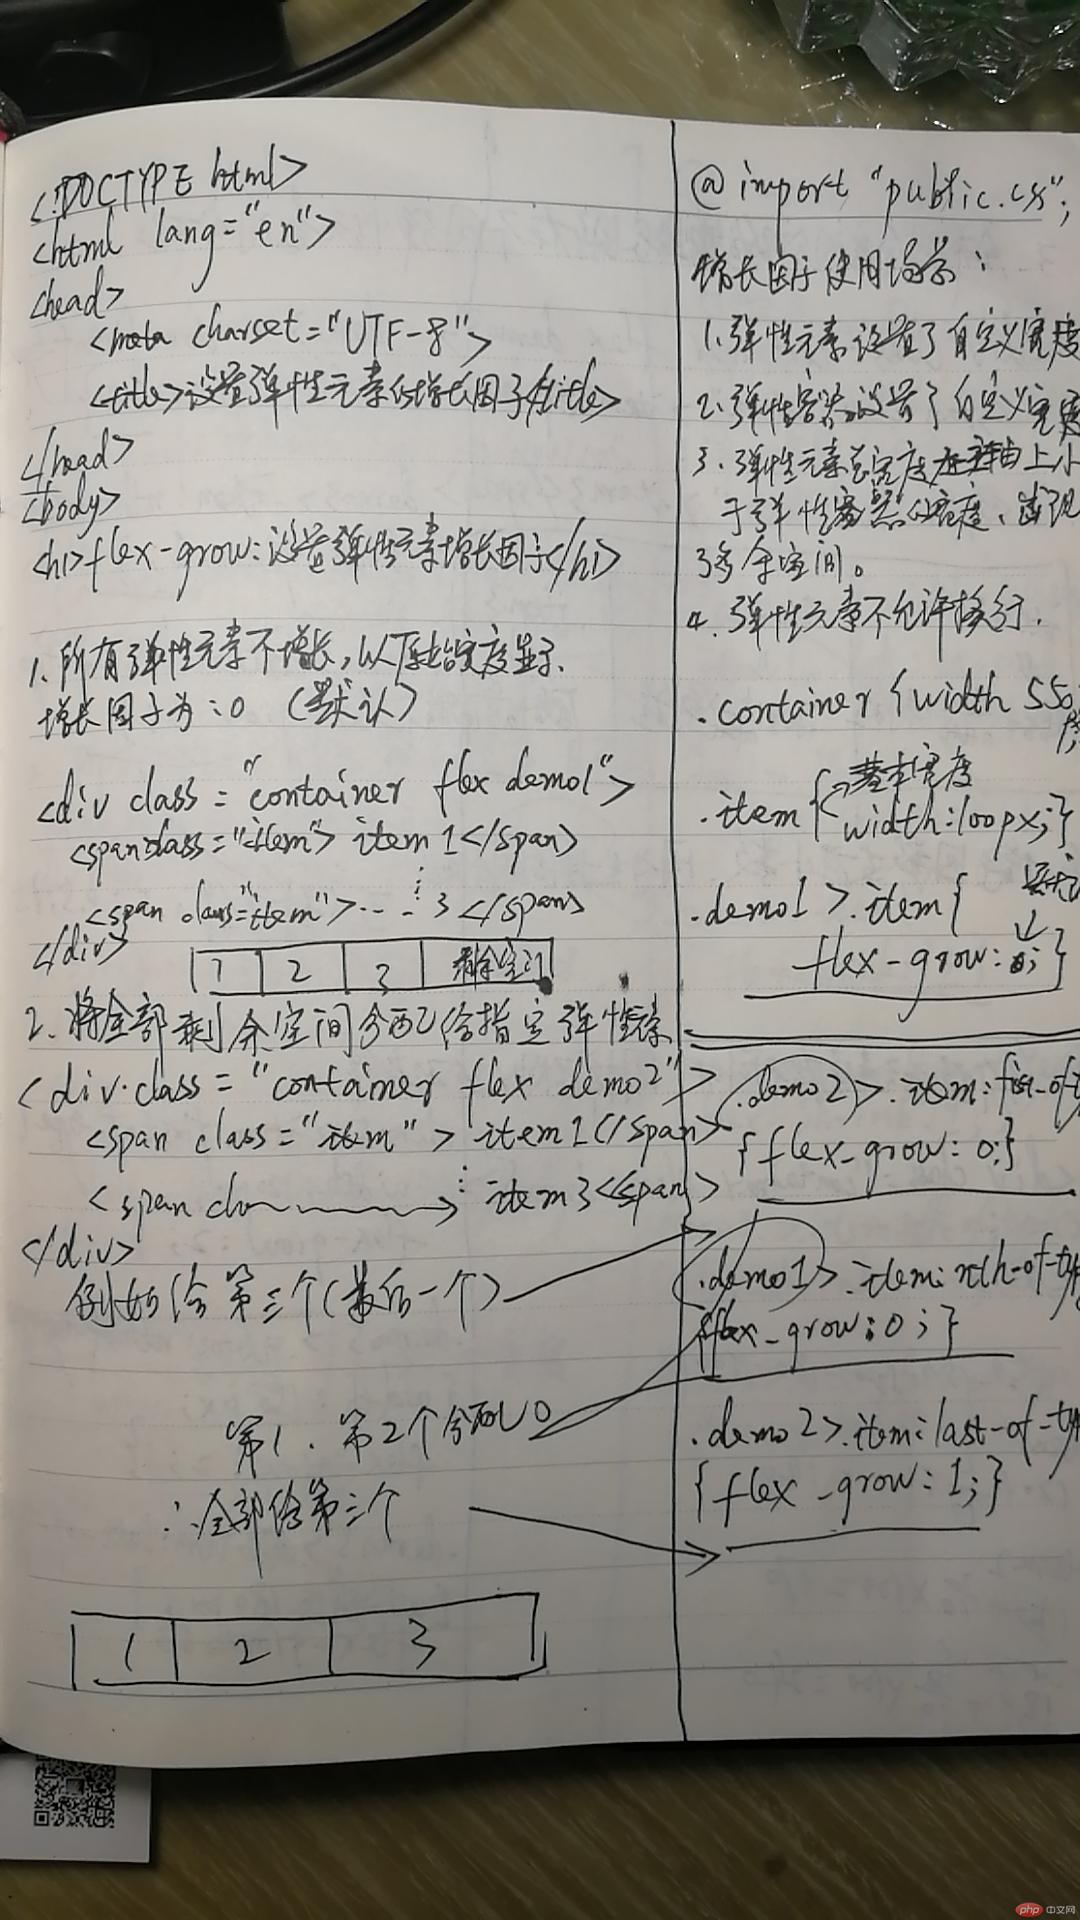 <!DOCTYPE html>
<html lang="en">
<head>
<meta charset="UTF-8">
<title>设置弹性元素的增长因子</title>
</head>
<body>
<h1>flex-grow:设置弹性元素增长因子</h1>
1、所有弹性元素不增长,以原始宽度显示、
增长因子为:0 (默认)
<div class="container flex demo1">
<span class="item"> item 1</span>
<span class="item">... 3 </span>
</div>
1 2 3 剩余空间
2、将全部剩余空间分配给指定弹性元素
<div class="container flex demo2">
<span class="item"> item 1</span>
<span cla item 3</span>
</div>
例如给第三个(最后一个)
第1、第2个分配0
∴全部给第三个
1 2 3
@import "public.css";
增长因子使用场景:
1、弹性元素设置了自定义宽度
2、弹性容器设置了自定义宽度
3、弹性元素总宽度在主轴上小
于弹性容器的宽度、出现
了多余空间。
4、弹性元素不允许换行.
.container {width 550
.item { 基本宽度
width:100px;}
.demo1 >.item{
flex-grow: 0; }
.demo2 >.item:first-of-ty
{flex-grow: 0;}
.demo1>.item:nth-of-typ
{flex-grow:0;}
.demo2>.item:last-of-typ
{flex-grow:1;}
php 中文网